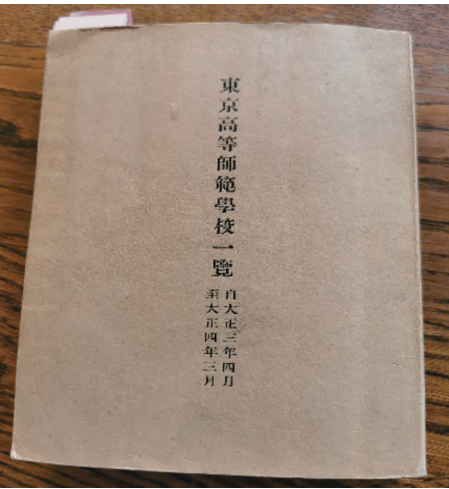 東京高等師範學校一覽
自大正三年四月
至大正四年三月